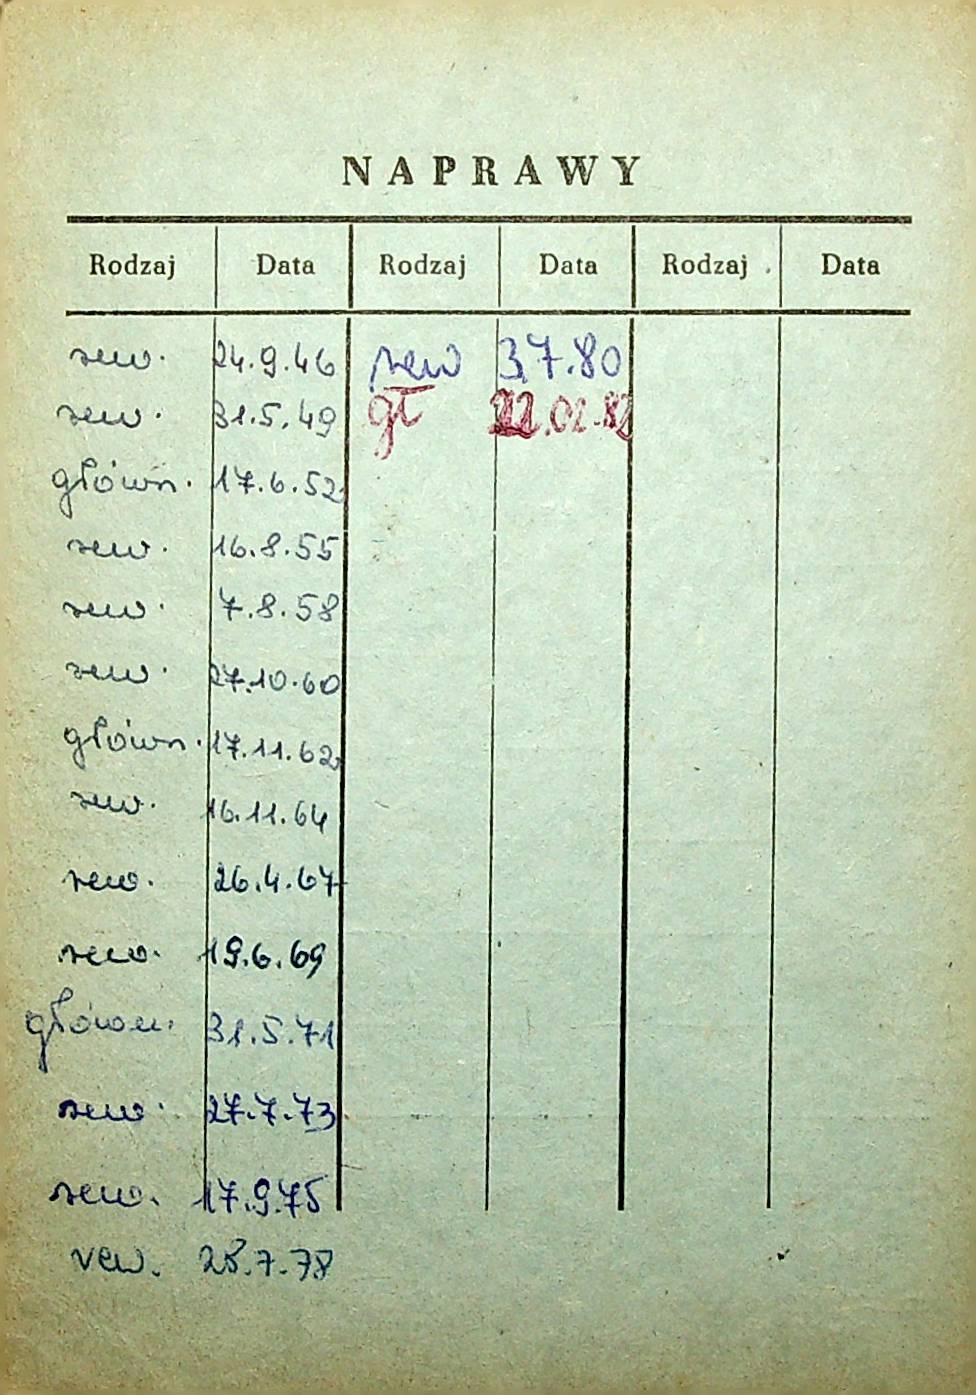 NAPRAWY
Rodzaj Data Rodzaj Data Rodzaj Data
rew. 24.9.46 rew 3.7.80
rew. 31.5.49 gł 22.02.82
główn. 17.6.52
rew. 16.8.55
rew. 7.8.58
rew. 27.10.60
główn. 17.11.62
rew. 16.11.64
rew. 26.4.67
rew. 19.6.69
główn. 31.5.71
rew. 27.7.73
rew. 17.9.75
rew. 28.7.78